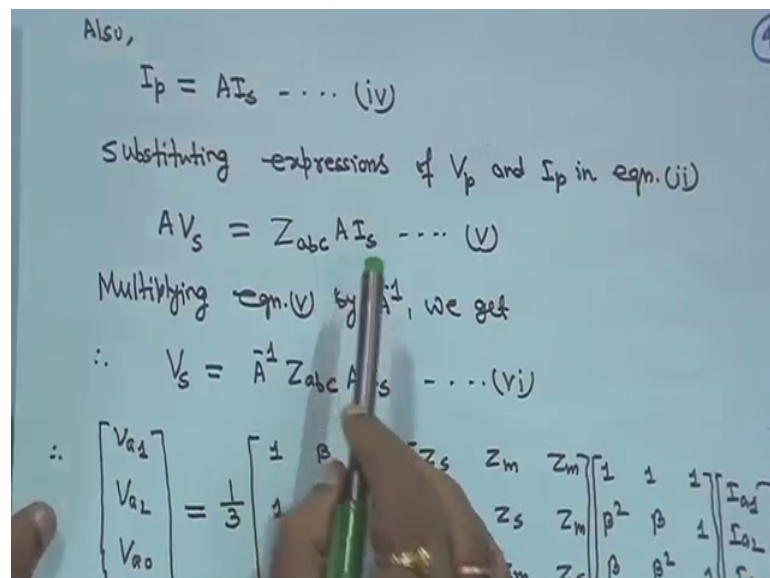 Also,
I_p = AI_s ---- (iv)
Substituting expressions of V_p and I_p in eqn. (ii)
AV_s = Z_abc AI_s ---- (v)
Multiplying eqn. (v) by A^-1, we get
∴ V_s = A^-1 Z_abc A I_s ---- (vi)
∴ [V_a1 V_a2 V_a0] = 1/3 [1 β
1 Z_s Z_m Z_m
Z_s Z_m
Z_s] [1 1 1
β² β 1
β β² 1] [I_a1
I_a2